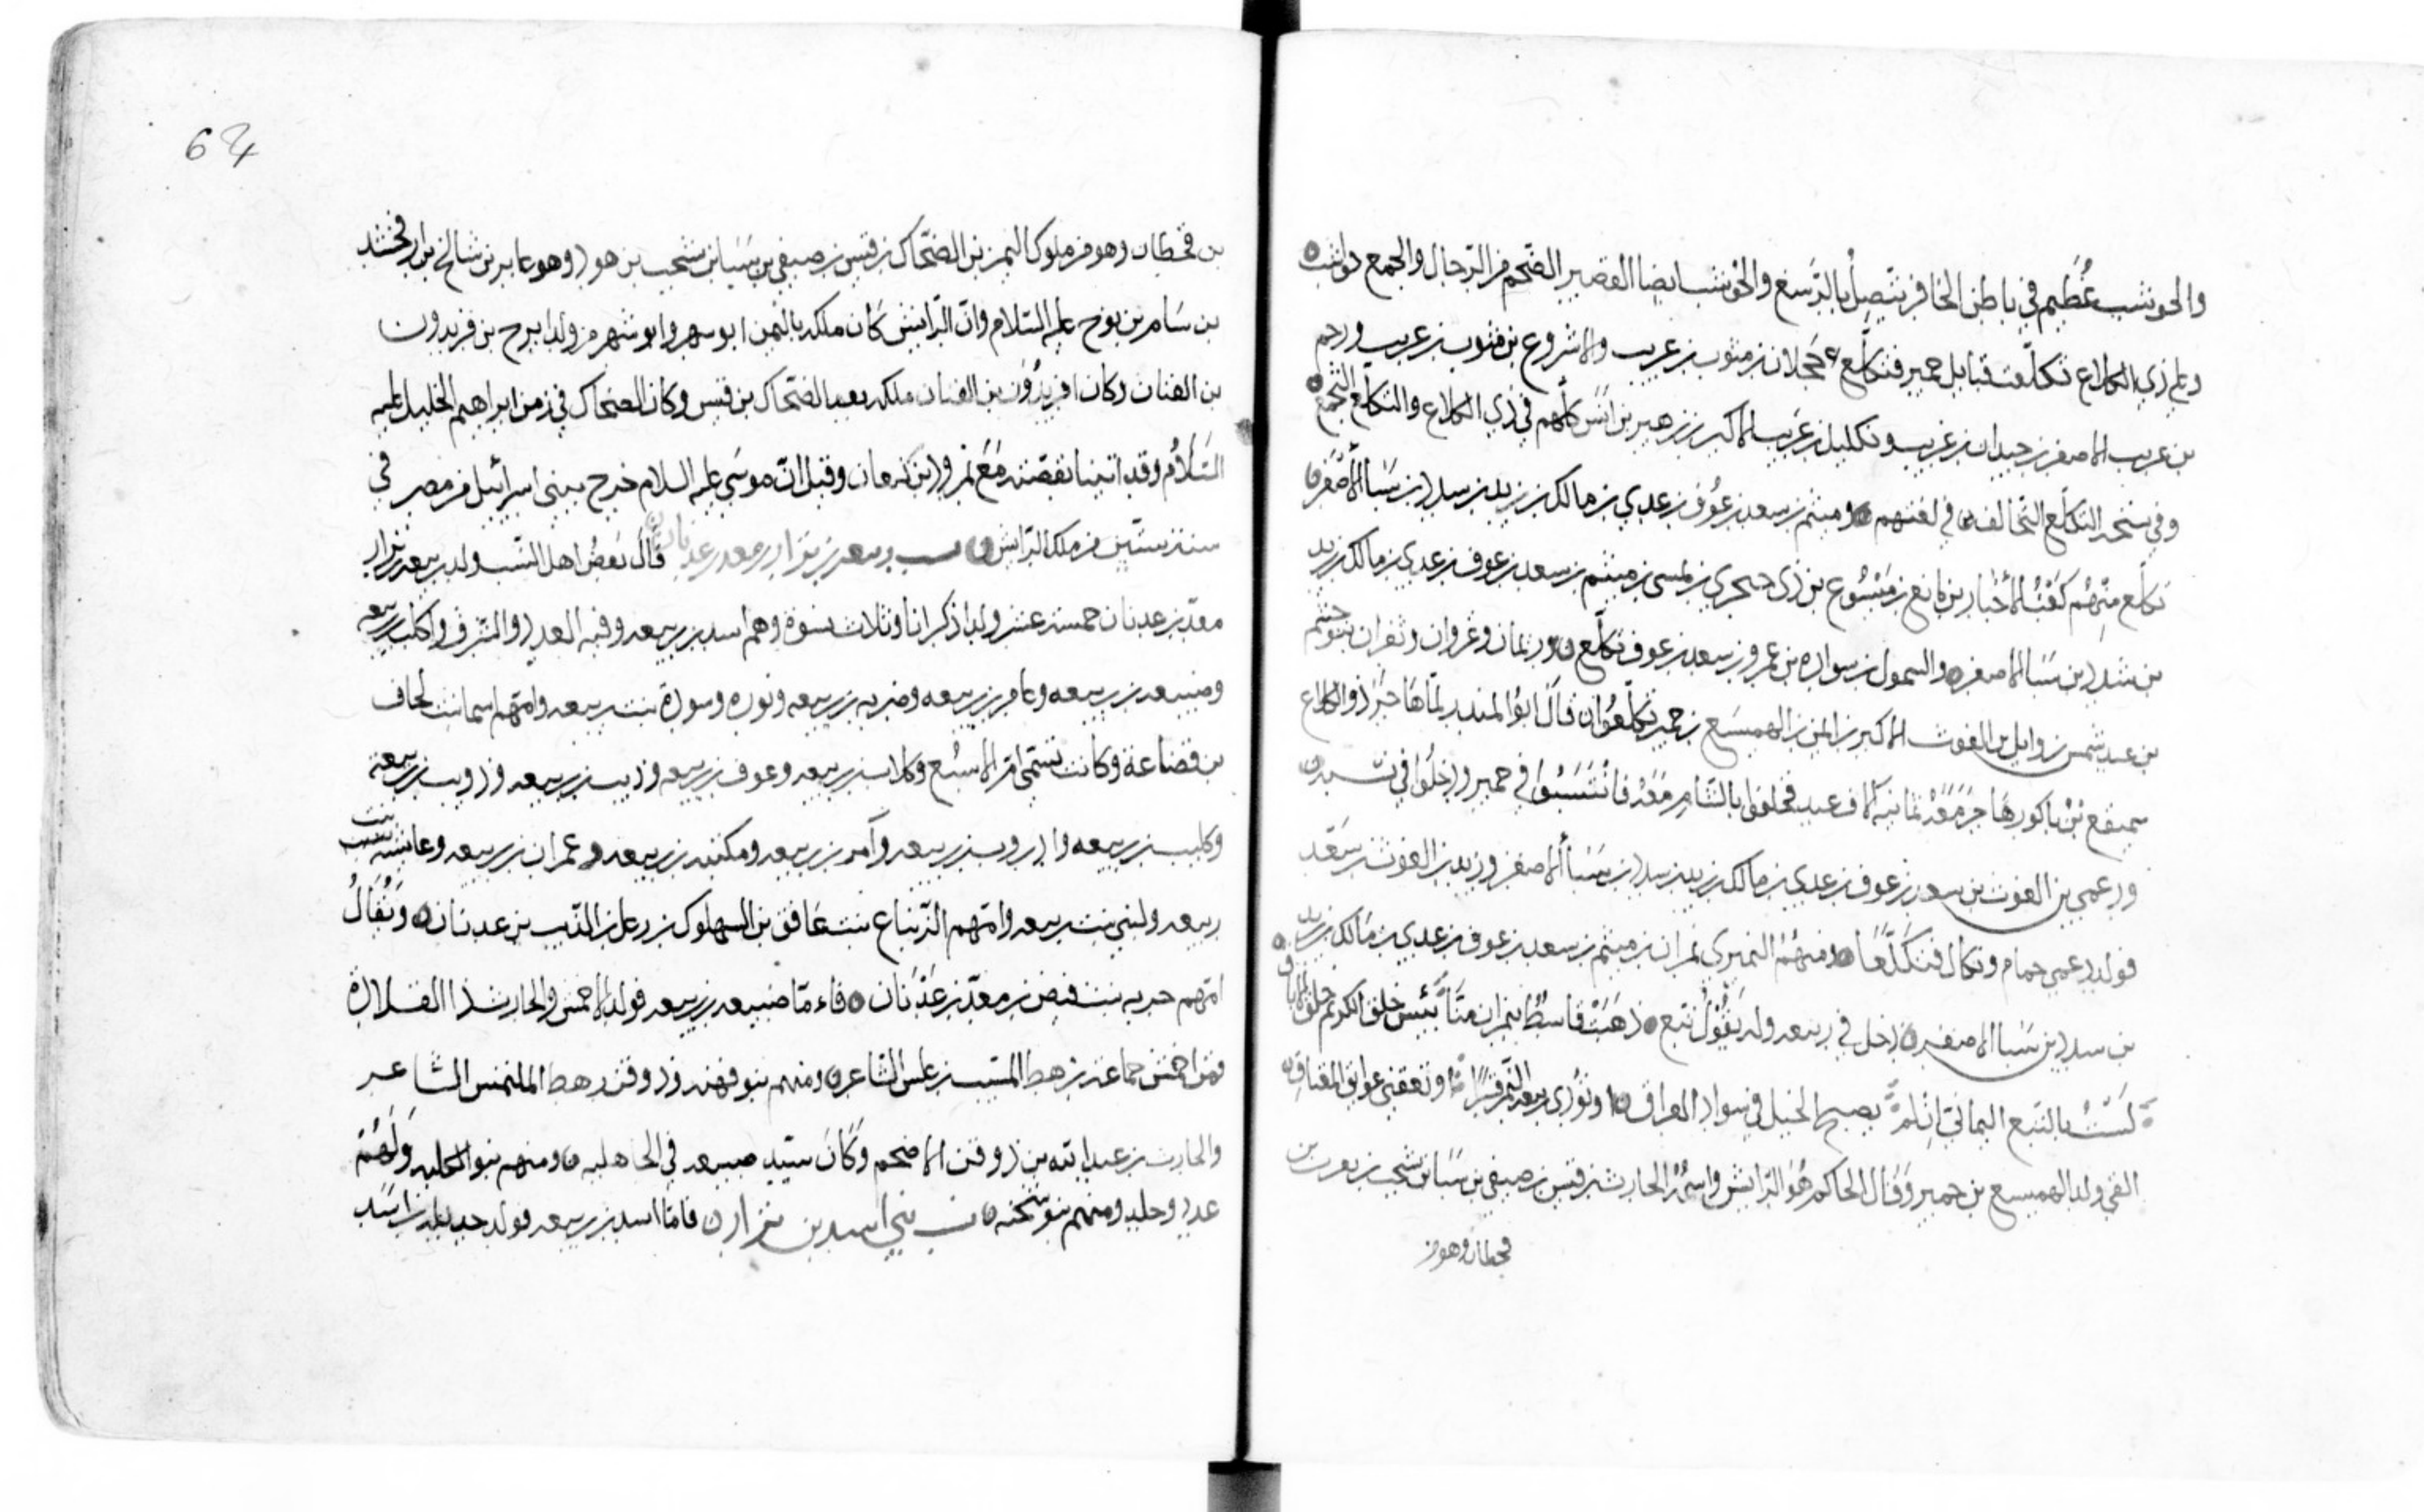 والحوشب عُظَيم في باطن الحافر يتّصِلُ بالرّسغ والحَوْشب ايضا القصير الضّخم من الرّجال والجمع حواشب
وعلى ذي الكلاع تكلّعت قبايل حمير فتكلّع حجلان بن مثوب بن عريب والاشروع بن مثوب بن عريب ورحم
بن عريب الاصغر بن حيدان بن عريب وتكليل بن عريب الاكبر بن زهير بن انس كلّهم في ذي الكلاع والتكلّع التجمّع
وفي نسخه التكلّع التحالف في لغتهم وميثم بن سعد بن عوف بن عدي بن مالك بن زيد بن سدد بن سَبا الأصغر
تكلّع منهُم كَعْبُ الأحْبار بن ماتع بن هَيْسُوع بن ذي هجري بن ميثم بن سعد بن عوف بن عدي بن مالك بن زيد
بن شدد بن سبا الاصغر والسمول بن سواده بن عمرو بن سعد بن عوف تكلّع وريمان وغروان ونفران بنو جشم
بن عبد شمس بن وايل بن الغوث الاكبر بن ايمن بن الهميسَع بن حمير تكلّعُوا قالَ ابوُ المنذر لمّا هَاجَرَ ذو الكلاع
سميفع بن باكورها جرَ مَعَهُ ثمانيه الاف عبد فحلفوا بالشّام مَعَهُ فانْتَسَبُوا في حمير ودخلُوا في نسبه
ودعمي بن الغوث بن سعد بن عوف بن عدي بن مالك بن زيد بن سدد بن سَبا الاصغر وزيد بن الغوث بن سَعْد
فولد دعمي حمام وتكال فتكلّعا ومنهُمْ النميري نمران بن ميثم بن سعد بن عوف بن عدي بن مَالك بن زيد
بن سدد بن سَبا الاصغر دخل في ربيعه وله يَقُوْلُ تبع ذهَبَتْ قاسطٌ بنمران منّا بَئيس خلق الكريم خلق الاباق
لَسْتُ بالتبع اليماني ان لم تصبح الخيل في سواد العراق او تؤدي ربيعه التمر قسرًا او تعقني عوايق المعتاق
الفي ولد الهميسع بن حمير وقَال الحاكم هُوَ الرّايش واسمُهُ الحارث بن قيس بن صيفي بن سَبا بن يشجب بن يعرب بن
قحطان وهو من
64
بن قحطان وهو من ملوك اليمن بن الضحّاك بن قيس بن صيفي بن سَبَا بن يشجب بن هود وهو عابر بن شالخ بن ارفخشد
بن سَام بن نوح عليه السّلام وانّ الرّايش كان ملكه باليمن ابو سهر وابو شهر من ولد ايرج بن فريدون
بن الفنان وكان افريدُوْن بن الفنان ملكه بعد الضحّاك بن قيس وكان الضحاك في زمن ابراهيم الخليل عليه
السّلامُ وقد اتينا بقصّته مَعَ نمرود بن كنعان وقيل انّ موسَى عليه السلام خرج ببني اسرائيل من مصر في
سنة ستّين من ملك الرّايش نسب ربيعه بن نزار بن معد بن عدنان قَالَ بَعضُ اهل النّسب ولد ربيعه بن نزار بن
معدّ بن عدنان خمسة عشر ولدا ذكرانا وثلاث نسوة وهم اسد بن ربيعه وفيه العدد والشّرف واكلب بن ربيعه
وضبيعه بن ربيعه وعامر بن ربيعه وضريه بن ربيعه ونوره وسودة بنت ربيعه وامّهم اسما بنت لحاف
بن قضاعة وكانت تسمّى ام الاسبُع وكلاب بن ربيعه وعوف بن ربيعه وذيب بن ربيعه وذويب بن ربيعه
وكليب بن ربيعه وادروب بن ربيعه وآمر بن ربيعه ومكتنه بن ربيعه وعمران بن ربيعه وعايشه بنت
ربيعه ولبني بنت ربيعه وامّهم الرّباع بنت غافق بن السهلوك بن رعل بن الذّيب بن عدنان ويُقَالُ
امّهم حربه بنت قنص بن معدّ بن عَدْنَان فاءمّا ضبيعه بن ربيعه فولد الاحمس والحارث ذا القلادة
فمن احمس جماعة بن رهط المسّيب بن علس الشّاعر ومنهم بنو فهنه ودوفن رهط الملتمس الشاعر
والحارث بن عبد الله بن دوفن الاضخم وَكَانَ سيّد ضبيعه في الجاهليه ومنهم بنو الكلبه وَلَهُمْ
عدد وجلد ومنهم بنو شحنه نسب بني اسد بن نزار فامّا اسد بن ربيعه فولد جديله بن اسَد